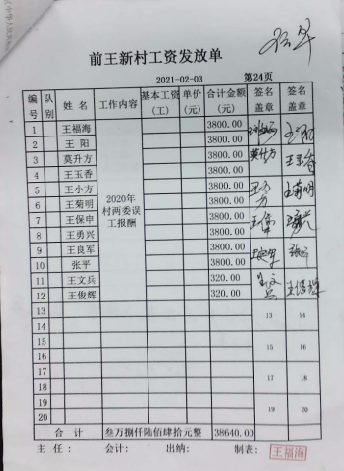 前王新村工资发放单
2021-02-03 第24页
编号 队别 姓名 工作内容 基本工资(工) 单价(元) 合计金额(元) 签名盖章 签名盖章
1 王福海 3800.00
2 王阳 3800.00
3 莫升方 3800.00 莫升方
4 王玉香 3800.00 王玉香
5 王小方 3800.00
6 王菊明 3800.00 王菊明
7 王保申 3800.00
8 王勇兴 3800.00
9 王良军 3800.00
10 张平 3800.00
11 王文兵 320.00
12 王俊辉 320.00 王俊辉
2020年村两委误工报酬
13 13 14
14
15 15 16
16
17 17 18
18
19 19 20
20
合计 叁万捌仟陆佰肆拾元整 38640.0)
主任: 会计: 出纳: 制表: 王福海